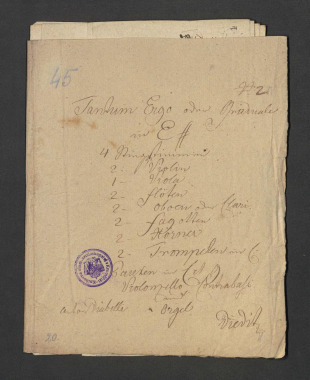 45
No 2
Tantum Ergo oder Graduale
in C
4 Singstimmen
2 - Violin
1 - Viola
2 - Flöten
2 - Oboen oder Clari
2 - Fagotten
2 - Hörner
2 - Trompeten in C
Pauken in C
Violoncello Contrabaß
Anton Diabelli - Orgel
20.